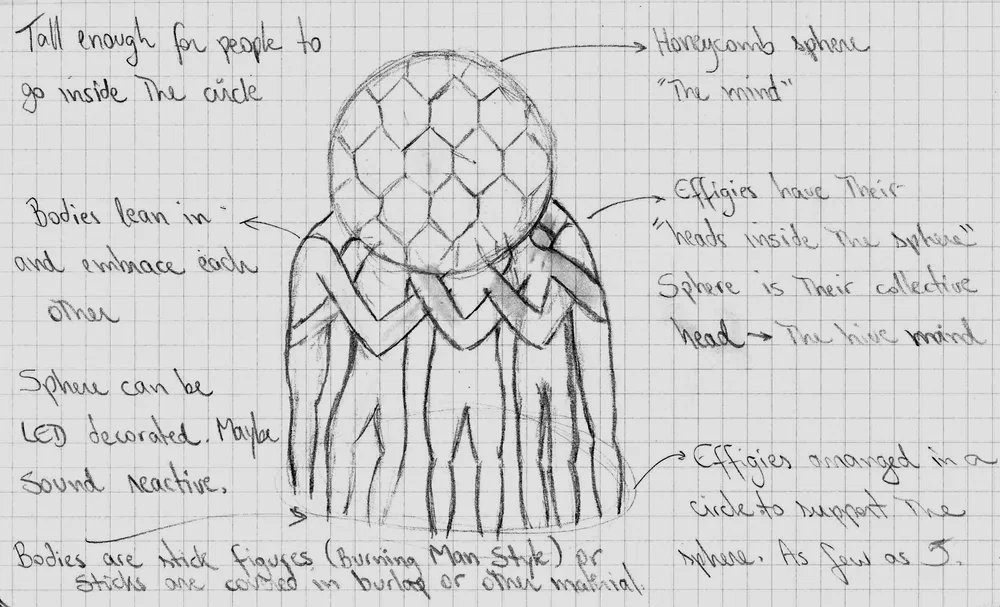 Tall enough for people to
go inside The circle
Honeycomb sphere
"The mind"
Bodies lean in
and embrace each
other
Effigies have Their
"heads inside The sphere"
Sphere is Their collective
head → The hive mind
Sphere can be
LED decorated. Maybe
Sound reactive.
Effigies arranged in a
circle to support The
sphere. As few as 5.
Bodies are stick figures (Burning Man Style) or
Sticks are covered in burlap or other material.